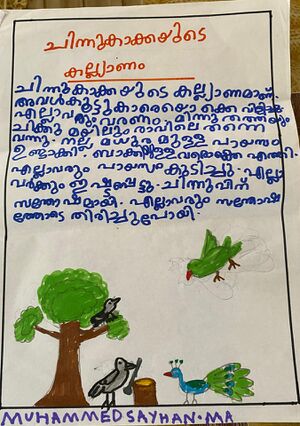 ചിന്നുകാക്കയുടെ
കല്ല്യാണം
ചിന്നുകാക്കയുടെ കല്ല്യാണമാണ്.
അവൾ കൂട്ടുകാരെയൊക്കെ വിളിച്ചു.
എല്ലാവരും വരണം. മിന്നു തത്തയും
ചിക്കു മയിലും രാവിലെ തന്നെ
വന്നു. നല്ല മധുരമുള്ള പായസം
ഉണ്ടാക്കി. ബാക്കിയുള്ളവരൊക്കെ എത്തി.
എല്ലാവരും പായസം കുടിച്ചു. എല്ലാ
വർക്കും ഇഷ്ടപ്പെട്ടു. ചിന്നുവിന്
സന്തോഷമായി. എല്ലാവരും സന്തോഷ
ത്തോടെ തിരിച്ചുപോയി.
MUHAMMED SAYHAN. MA